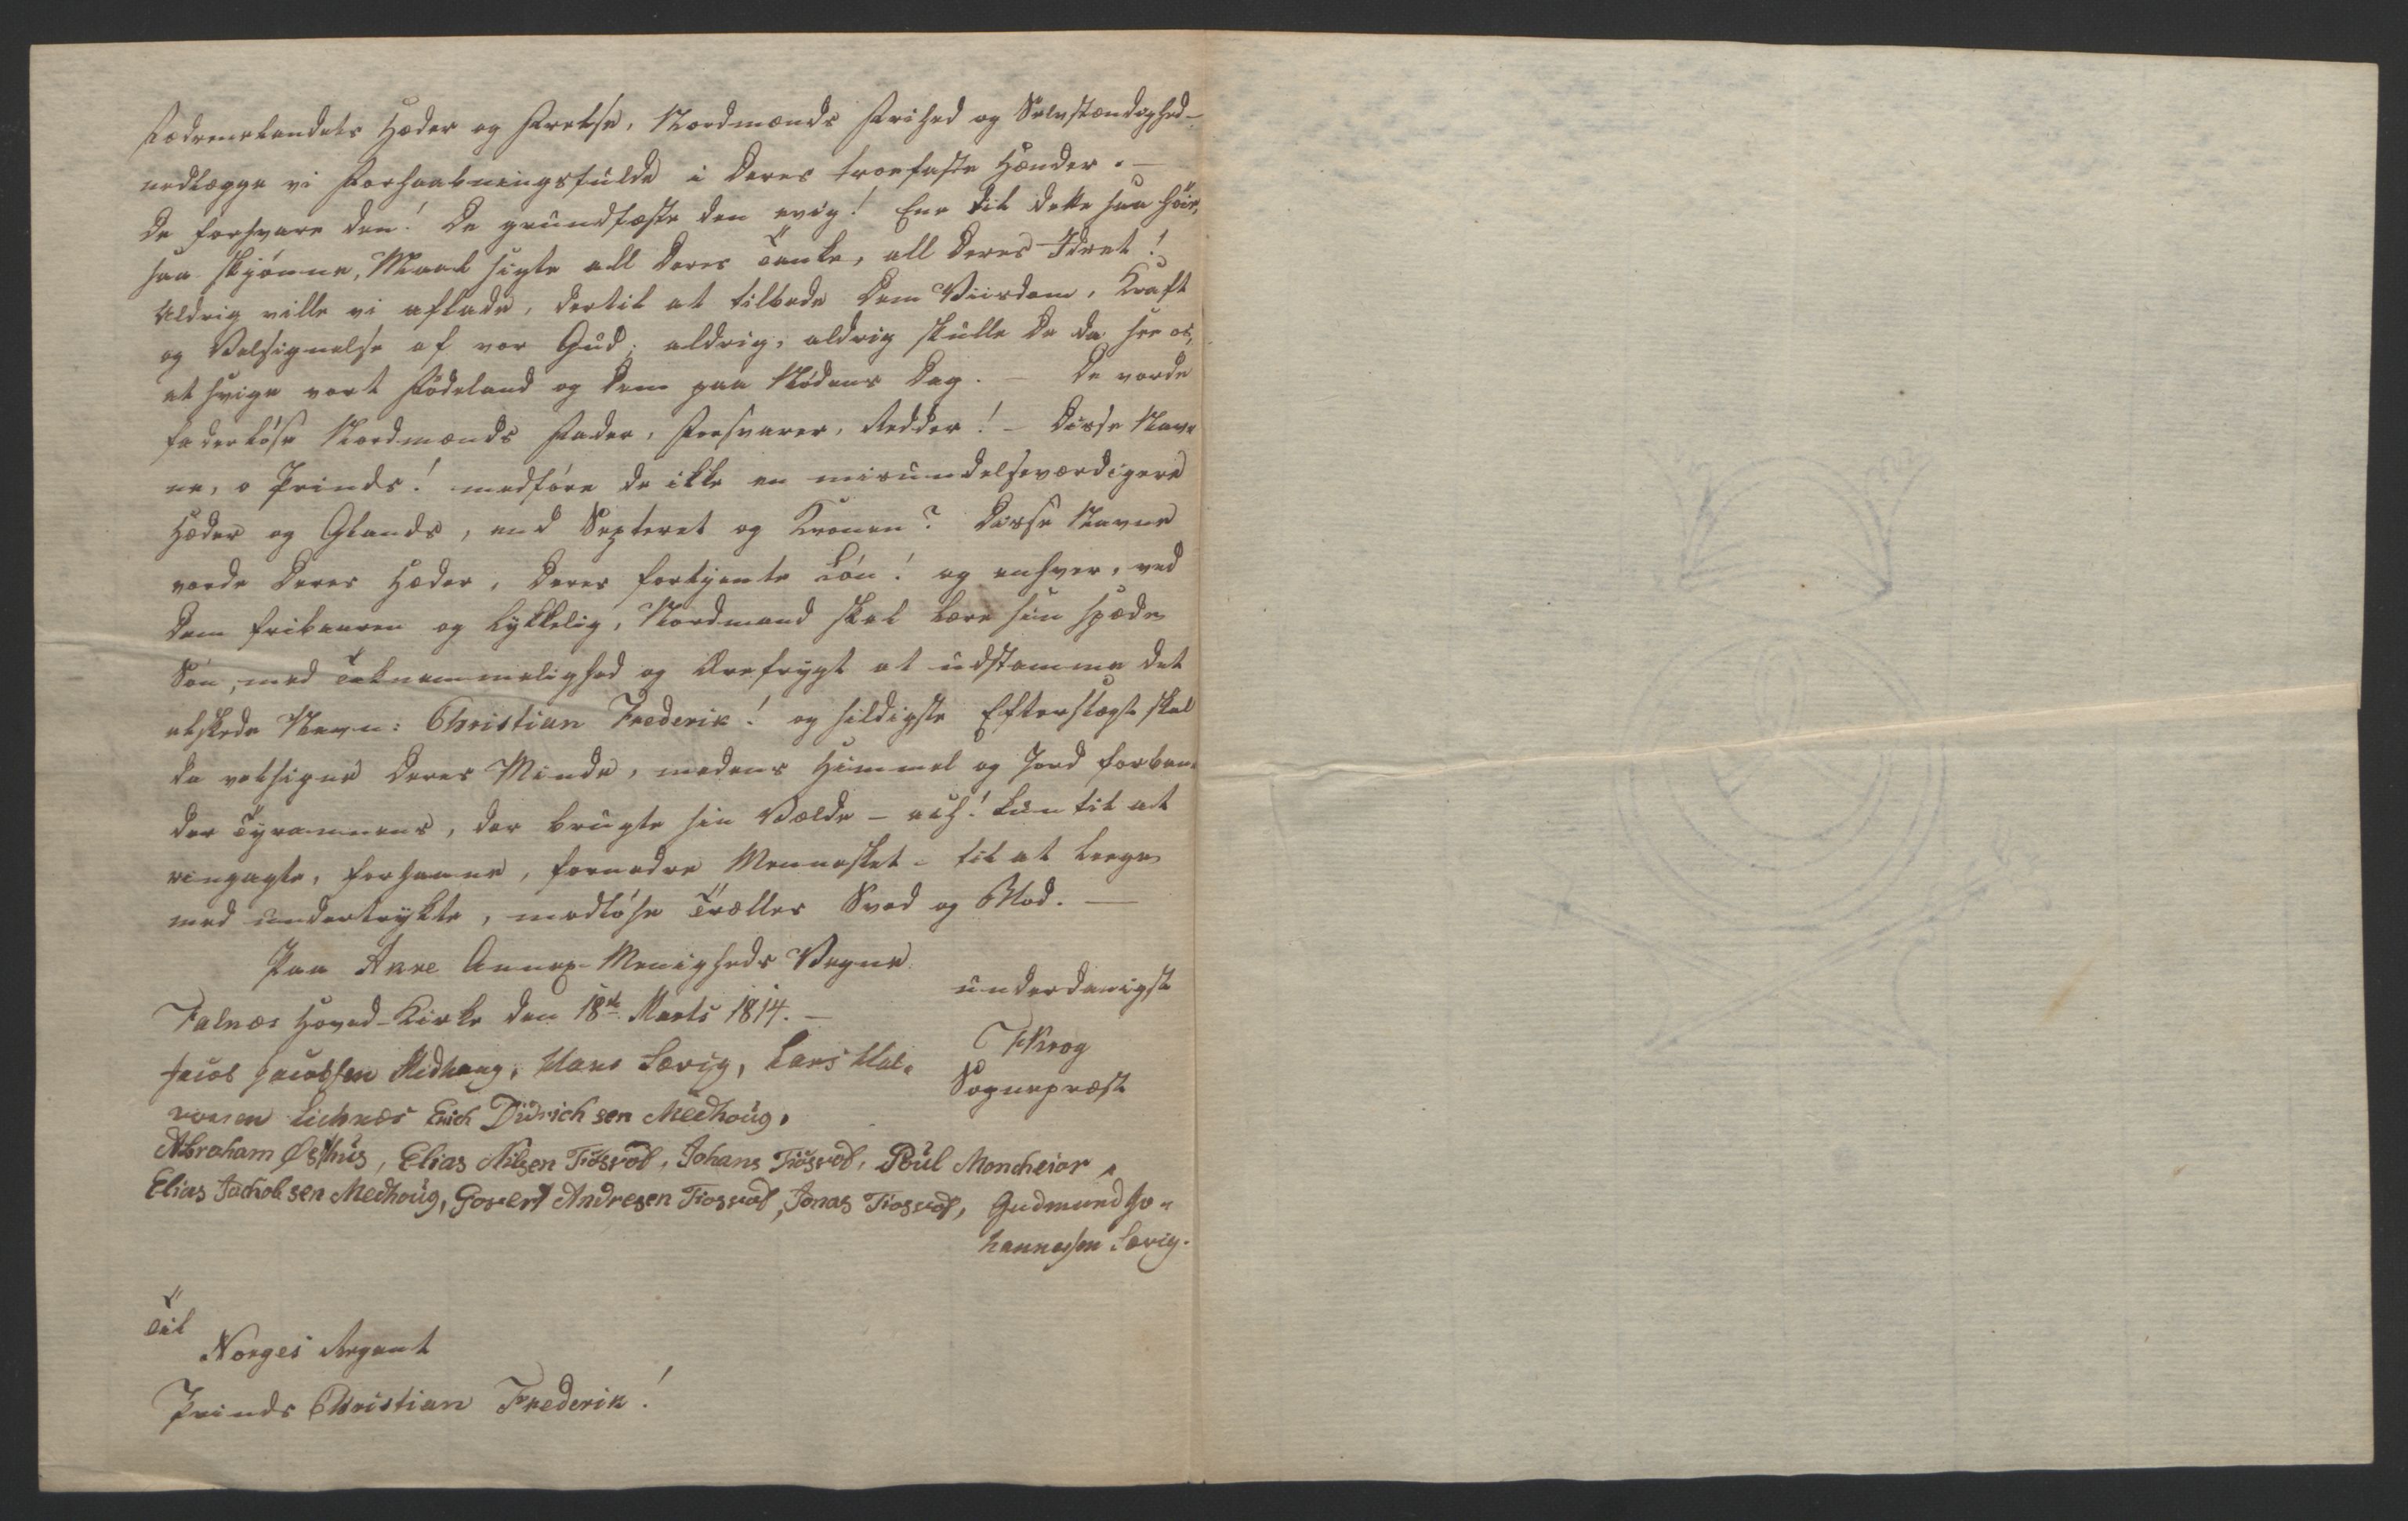 Fædrenelandets Hæder og Frelse, Nordmænds Frihed og Selvstændighed-
nedlægge vi Forhaabningsfulde i Deres troefaste Hænder. -
De forsvare den! De grundfæste den evig! Ene til dette saa høie,
saa skjønne, Maal sigte all Deres Tanke, all Deres Idræt!
Aldrig ville vi aflade, dertil at tilbede Dem Viisdom, Kraft
og Velsignelse af vor Gud; aldrig, aldrig skulle De da see os,
at svige vort Födeland og Dem paa Nödens Dag. - De vorde
faderlöse Nordmænds Fader, Forsvarer, Redder! - Disse Nav-
ne, o Prinds! medföre de ikke en misundelseværdigere
Hæder og Glands, end Septeret og Kronen? Disse Navne
vorde Deres Hæder, Deres fortjente Lön! og enhver, ved
Dem fribaaren og lykkelig, Nordmand skal lære sin spæde
Sön, med Taknemmelighed og Ærefrygt at udstamme det
elskede Navn: Christian Frederik! og sildigste Efterslægt skal
da velsigne Deres Minde, medens Himmel og Jord forban-
der Tyrannens, der brugte sin Vælde - ach! kun til at
ringagte, forhaane, fornedre Mennesket - til at leege
med undertrykte, modlöse Trælles Sved og Blod. -
Paa Aare Annex-Menigheds Vegne
underdanigst
Falnæs Hoved-Kirke den 18de Marts 1814. -
Krog
Jacob Jacobsen Medhaug, Hans Sævig, Lars Hal-
Sognepræst
vorsen Lichnæs Erich Didrichsen Medhoug,
Abraham Østhus, Elias Nilsen Tiøsvol, Johans Tiøsvol, Poul Moncheior,
Elias Jachobsen Medhoug, Govert Andresen Tiosvol, Jonas Tiosvol, Gudmund Jo-
hannessen Sævig.
Til
Norges Regent
Prinds Christian Frederik!